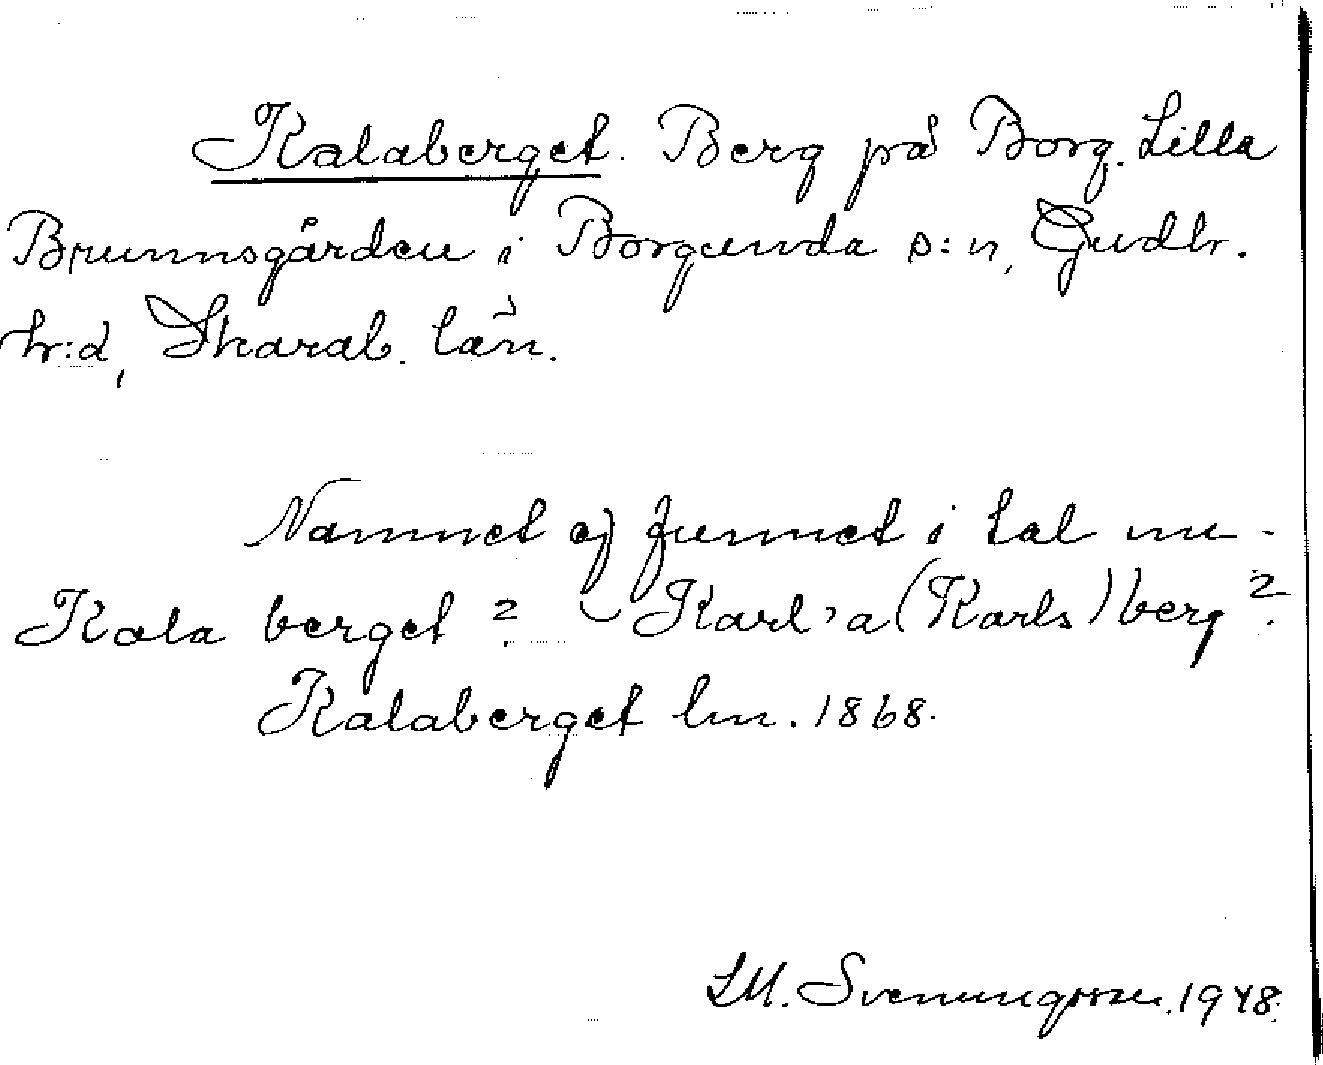 Kalaberget. Berg på Borg. Lilla
Brunnsgården i Borgunda s:n, Gudh.
h:d, Skarab. län.
Namnet ej funnet i tal nu -
Kala berget? Karl'a (Karls) berg?
Kalaberget lm. 1868.
L.M. Svenungsson. 1948.